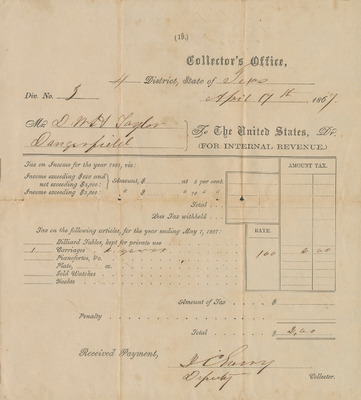 (18.)
Collector's Office,
4 District, State of Texas
Div. No. 3 April 17th 1867
Mr. D W H Taylor
Dangerfield
To The United States, Dr.
(FOR INTERNAL REVENUE.)
Tax on Income for the year 1866, viz: AMOUNT TAX.
Income exceeding $600 and not exceeding $5,000: Amount, $ at 5 per cent.
Income exceeding $5,000: " $ " 10 " "
Total
Less Tax withheld
Tax on the following articles, for the year ending May 1, 1867: RATE.
Billiard Tables, kept for private use
1 Carriages 1 00 2.00
Pianofortes, &c.
Plate, oz.
Gold Watches
Yachts
Amount of Tax $
Penalty
Total $ 2,00
Received Payment,
Deputy Collector.